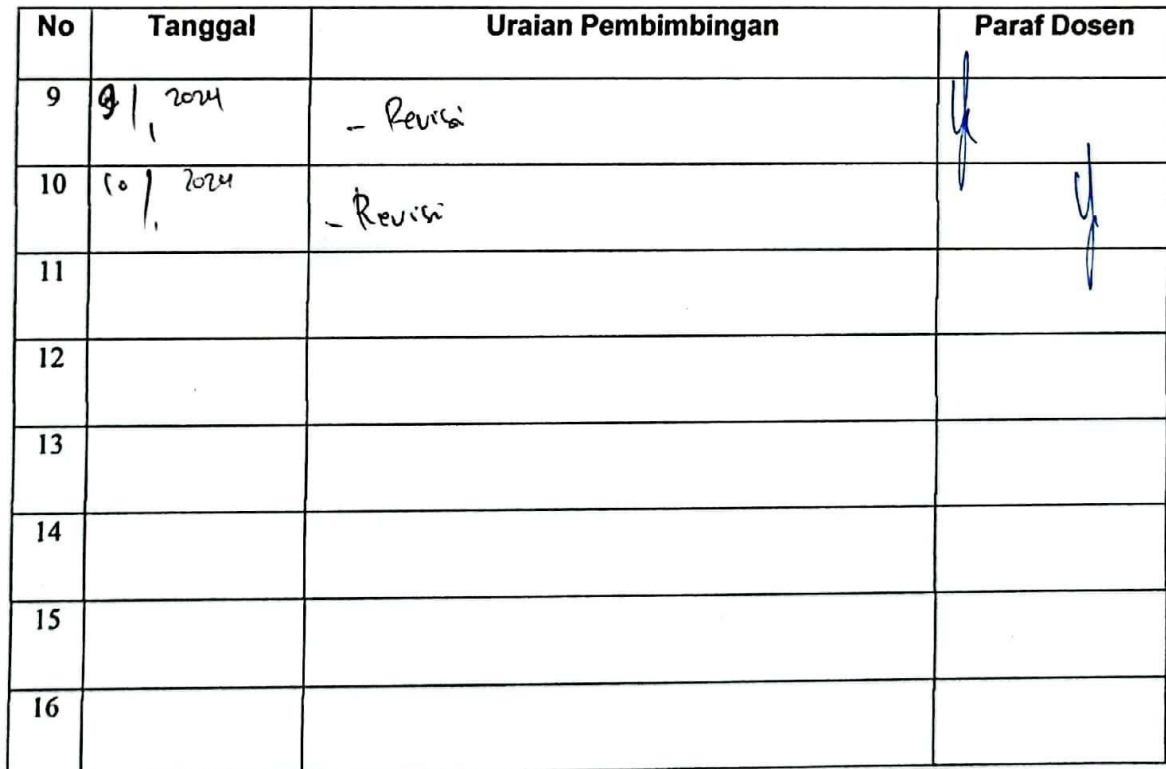 No Tanggal Uraian Pembimbingan Paraf Dosen
9 9/1 2024 - Revisi
10 10/1 2024 - Revisi
11
12
13
14
15
16